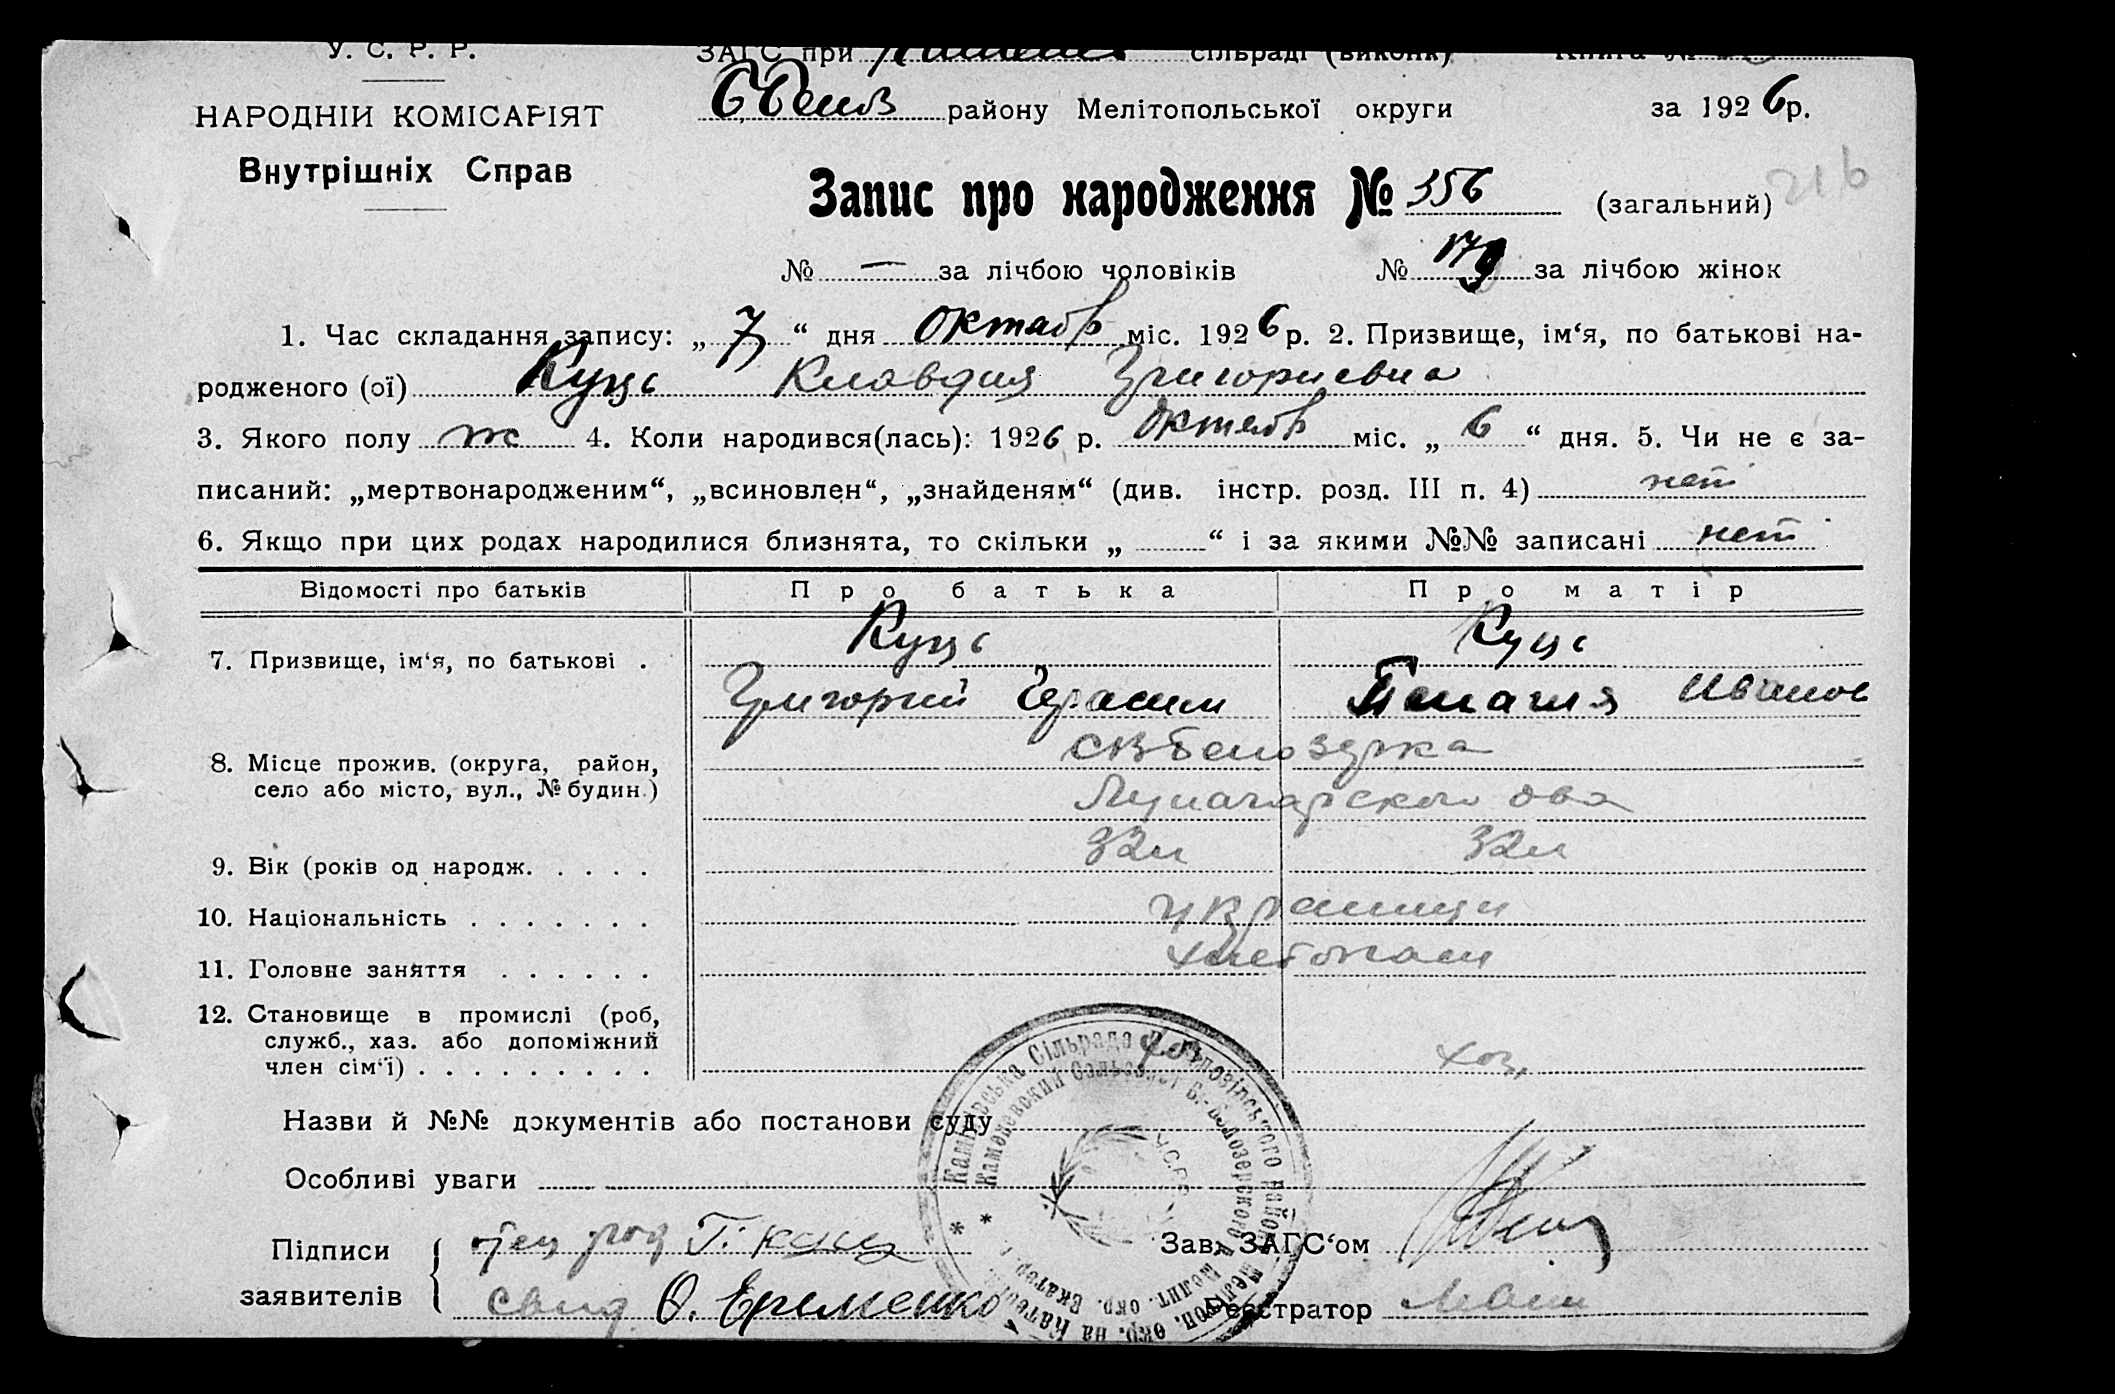 У. С. Р. Р.
ЗАГС при сільраді (виконк) Книга №
НАРОДНІЙ КОМІСАРІЯТ
району Мелітопольської округи за 1926р.
Внутрішніх Справ
216
Запис про народження № 356 (загальний)
№ — за лічбою чоловіків № 179 за лічбою жінок
1. Час складання запису: „ 7 “ дня октябр міс. 1926 р. 2. Призвище, ім‘я, по батькові на-
родженого (ої) Куць Клавдия Григориевна
3. Якого полу ж 4. Коли народився(лась): 1926 р. октябр міс. „ 6 “ дня. 5. Чи не є за-
писаний: „мертвонародженим“, „всиновлен“, „знайденям“ (див. інстр. розд. III п. 4) нет
6. Якщо при цих родах народилися близнята, то скільки „ “ і за якими №№ записані нет
Відомості про батьків Про батька Про матір
7. Призвище, ім‘я, по батькові . Куць Куць
Григорий Герасим Пелагия Иванов
8. Місце прожив. (округа, район, село або місто, вул., № будин.)
Белозерка
Луначарского
9. Вік (років од народж. . . . . 32л 32л
10. Національність . . . . . . . украинци
11. Головне заняття . . . . . . хлебопаш
12. Становище в промислі (роб,
служб., хаз. або допоміжний
член сім‘ї) . . . . . . . . . хоз. хоз.
Назви й №№ документів або постанови суду
Особливі уваги
Підписи отец Г. Куц Зав. ЗАГС‘ом
заявителів свид О. Еременко Реєстратор
Кам‘янська Сільрада Білозірського району Мелітоп. окр. на Катерин.
Каменевский Сельсовет Б.-Белозерского Мелит. окр. Екатер.
У.С.Р.Р.